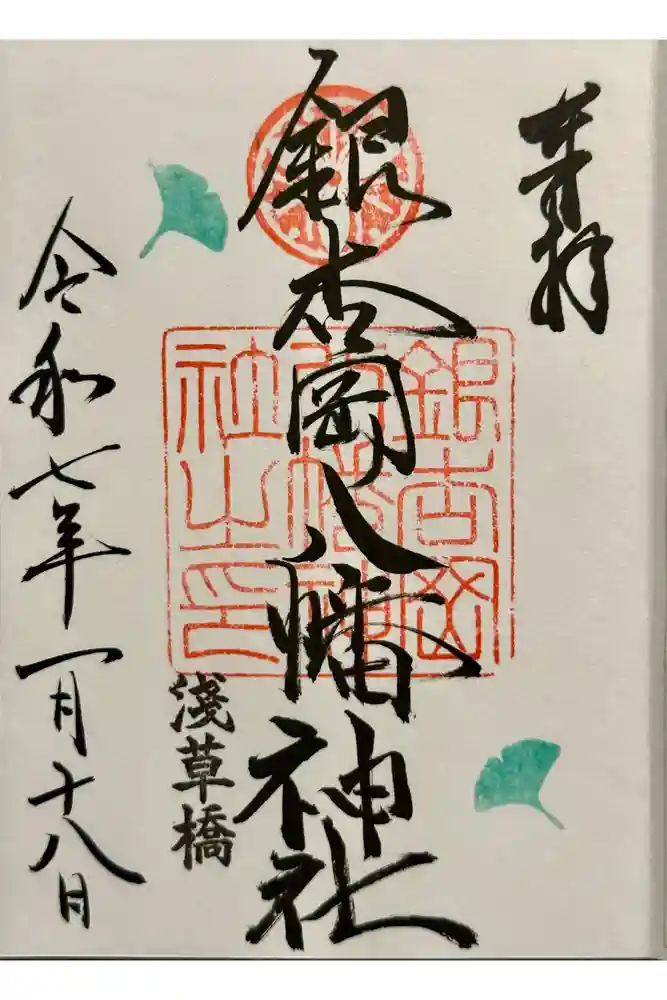 奉拝
銀杏岡八幡神社
銀杏岡八幡神社之印
浅草橋
令和七年一月十八日